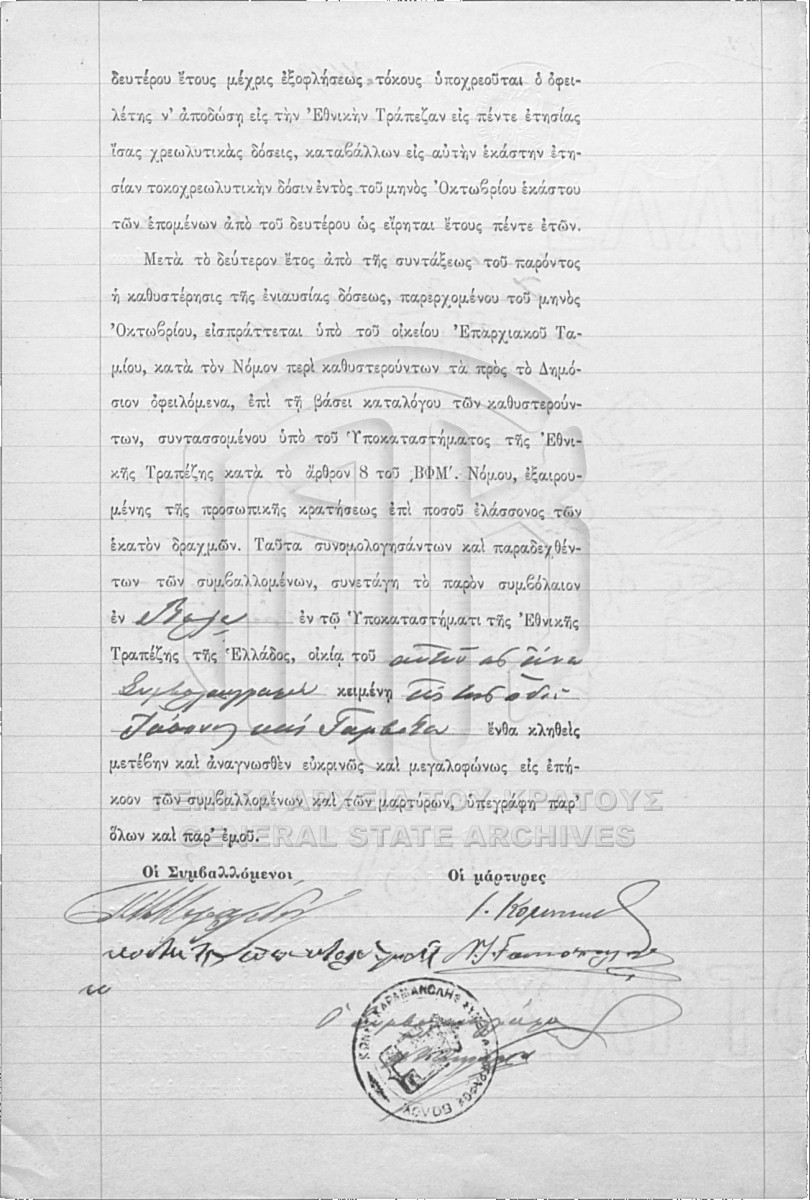 δευτέρου ἔτους μέχρις ἐξοφλήσεως τόκους ὑποχρεοῦται ὁ ὀφει-
λέτης ν' ἀποδώσῃ εἰς τὴν Ἐθνικὴν Τράπεζαν εἰς πέντε ἐτησίας
ἴσας χρεωλυτικὰς δόσεις, καταβάλλων εἰς αὐτὴν ἑκάστην ἐτη-
σίαν τοκοχρεωλυτικὴν δόσιν ἐντὸς τοῦ μηνὸς Ὀκτωβρίου ἑκάστου
τῶν ἑπομένων ἀπὸ τοῦ δευτέρου ὡς εἴρηται ἔτους πέντε ἐτῶν.
Μετὰ τὸ δεύτερον ἔτος ἀπὸ τῆς συντάξεως τοῦ παρόντος
ἡ καθυστέρησις τῆς ἐνιαυσίας δόσεως, παρερχομένου τοῦ μηνὸς
Ὀκτωβρίου, εἰσπράττεται ὑπὸ τοῦ οἰκείου Ἐπαρχιακοῦ Τα-
μίου, κατὰ τὸν Νόμον περὶ καθυστερούντων τὰ πρὸς τὸ Δημό-
σιον ὀφειλόμενα, ἐπὶ τῇ βάσει καταλόγου τῶν καθυστερούν-
των, συντασσομένου ὑπὸ τοῦ Ὑποκαταστήματος τῆς Ἐθνι-
κῆς Τραπέζης κατὰ τὸ ἄρθρον 8 τοῦ ͵ΒΦΜʹ. Νόμου, ἐξαιρου-
μένης τῆς προσωπικῆς κρατήσεως ἐπὶ ποσοῦ ἐλάσσονος τῶν
ἑκατὸν δραχμῶν. Ταῦτα συνομολογησάντων καὶ παραδεχθέν-
των τῶν συμβαλλομένων, συνετάγη τὸ παρὸν συμβόλαιον
ἐν Βόλῳ ἐν τῷ Ὑποκαταστήματι τῆς Ἐθνικῆς
Τραπέζης τῆς Ἑλλάδος, οἰκίᾳ τοῦ
κειμένῃ
Ἰάσονος καὶ ἔνθα κληθεὶς
μετέβην καὶ ἀναγνωσθὲν εὐκρινῶς καὶ μεγαλοφώνως εἰς ἐπή-
κοον τῶν συμβαλλομένων καὶ τῶν μαρτύρων, ὑπεγράφη παρ'
ὅλων καὶ παρ' ἐμοῦ.
ΓΕΝΙΚΑ ΑΡΧΕΙΑ ΤΟΥ ΚΡΑΤΟΥΣ
GENERAL STATE ARCHIVES
Οἱ Συμβαλλόμενοι Οἱ μάρτυρες
Ὁ συμβολαιογράφος
ΒΟΛΟΥ